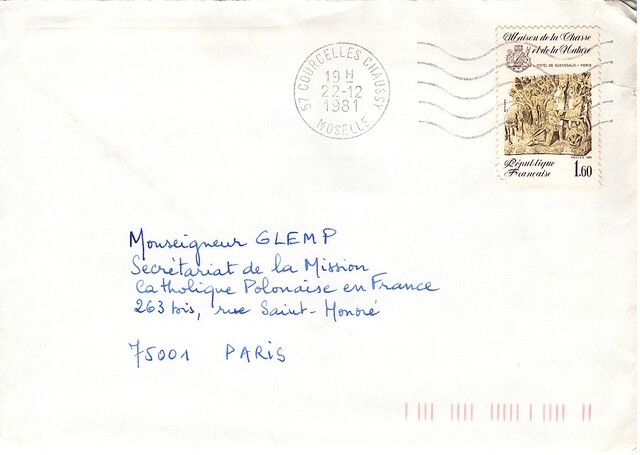 57 COURCELLES CHAUSSY
19 H
22-12
1981
MOSELLE
Maison de la Chasse
et de la Nature
HOTEL DE GUENEGAUD - PARIS
République
Française
1.60
Monseigneur GLEMP
Secrétariat de la Mission
Catholique Polonaise en France
263 bis, rue Saint-Honoré
75001 PARIS